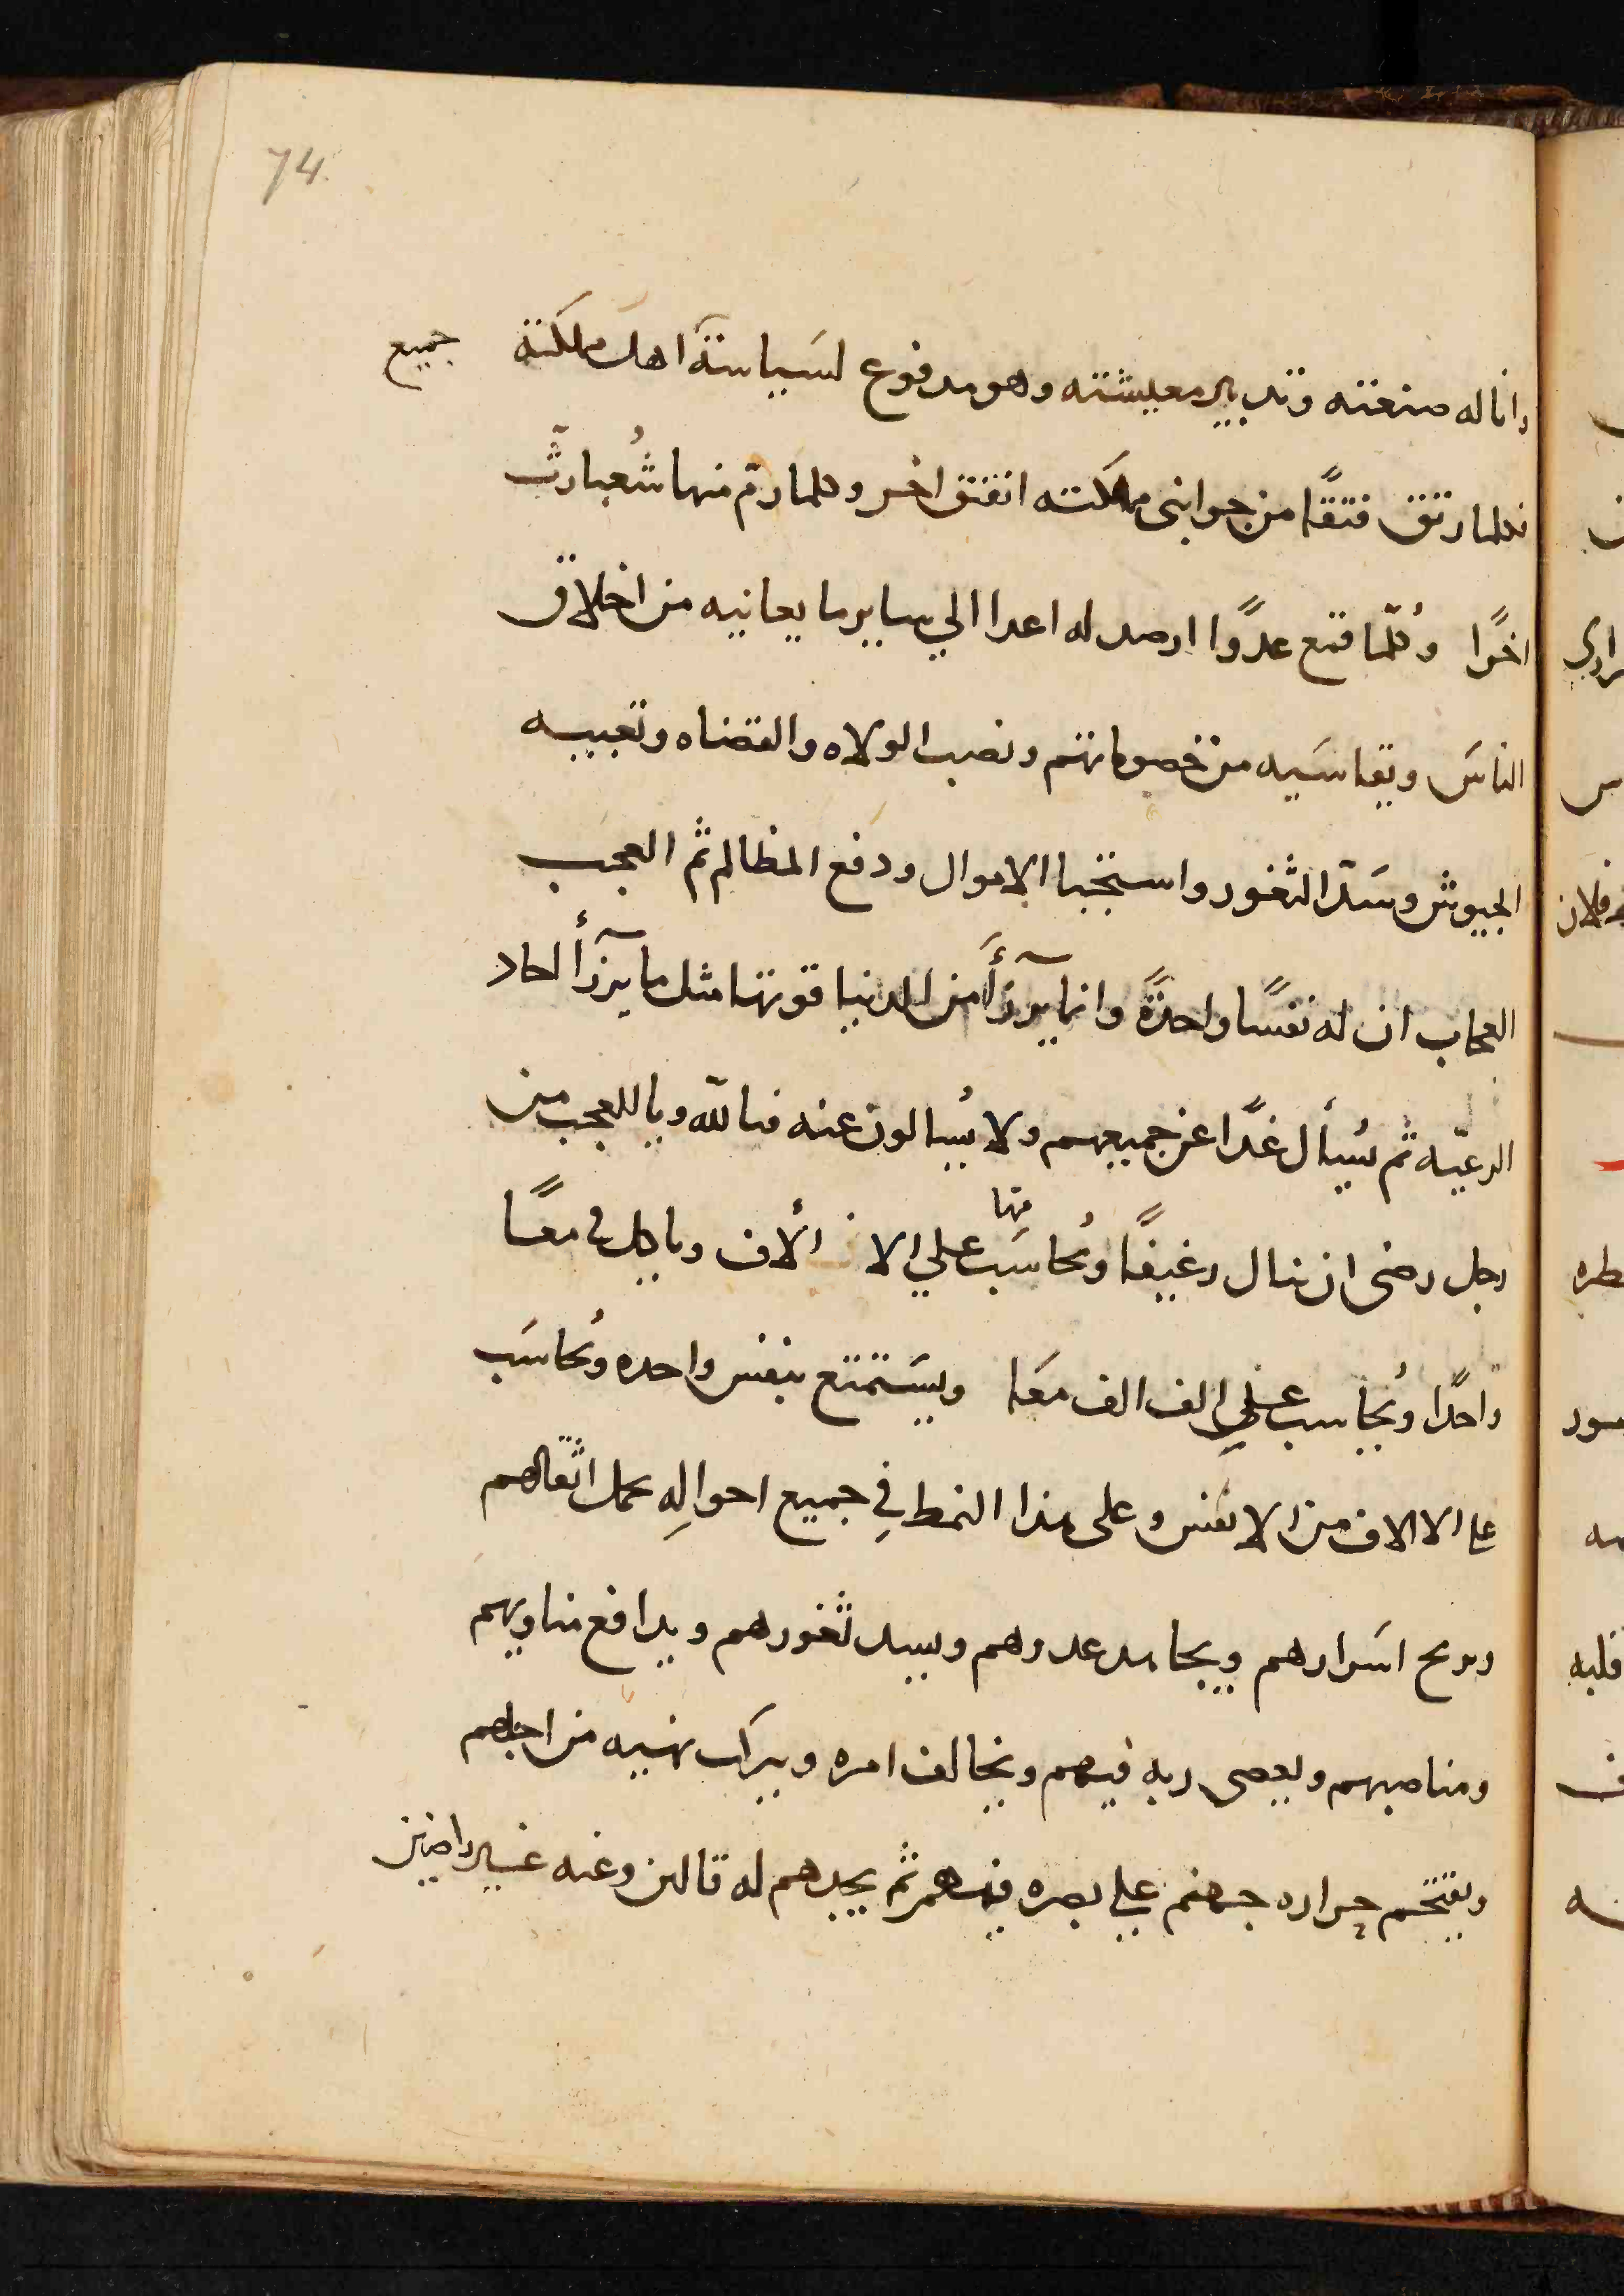 74
وانا له صنعته وتدبير معيشته وهو مدفوع لسياسة اهل مملكته جميع
فكلما رتق فتقًا من جوانب مملكته انفتق اخر وكلما رمّ منها شُعبا رثّ
اخرًا وكُلّما قمع عدوًّا ارصد له اعدا الي ساير ما يعانيه من اخلاق
الناس ويقاسيه من خصوماتهم ونصب الولاه والقضاه وتعبيه
الجيوش وسدّ الثغور واستجبا الاموال ودفع المظالم ثم العجب
العجاب ان له نفسًا واحدةً وانما يرزأ من الدنيا قوتها مثل ما يرزأ احاد
الرعيّه ثم يُسأل غدًا عن جميعهم ولا يُسالون عنه فيا للّه ويا للعجب من
رجل رضى ان ينال رغيفًا ويُحاسَب علي الاف ألاف منها وياكل في معًا
واحدًا ويُحاسب علي الف الف معًا ويستمتع بنفس واحده ويُحاسَب
علي الا الاف من الانفس وعلى هذا النمط في جميع احواله يحمل اثقالهم
ويريح اسرارهم ويجاهد عدوهم ويسد ثغورهم ويدافع مناويهم
ومناصبهم ويعصى ربه فيهم ويخالف امره ويركب نهيه من اجلهم
ويقتحم حراره جهنم علي بصره فيهم ثم يجدهم له قالين وعنه غير راضين